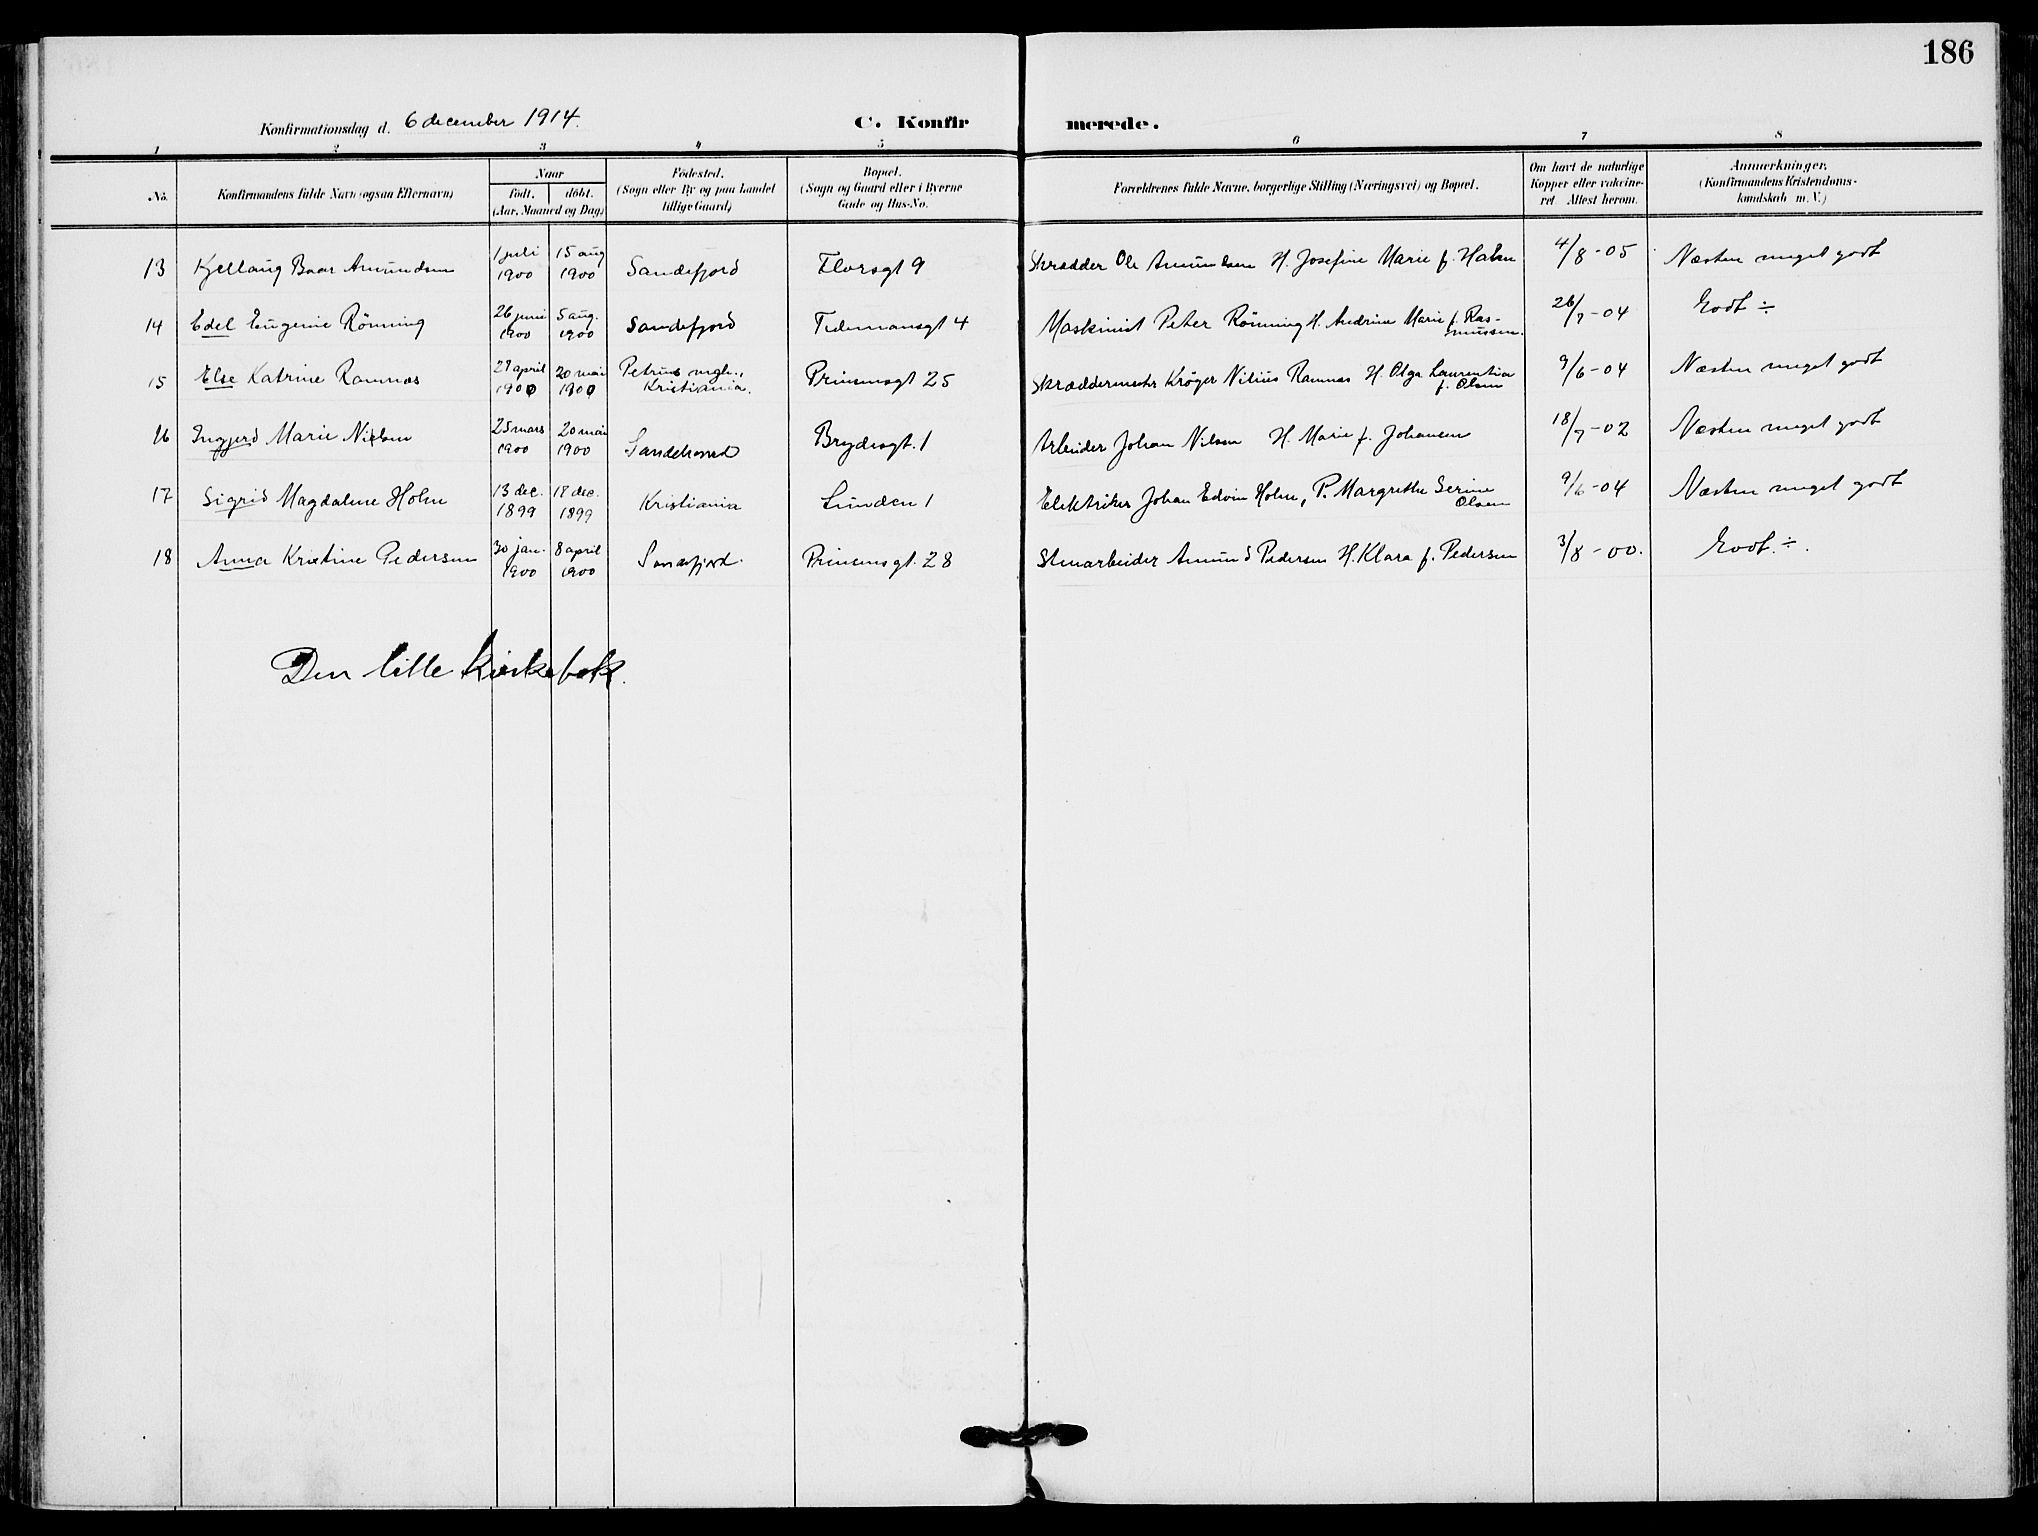 186
Konfirmationsdag d. 6 december 1914.
C. Konfirmerede.
1 2 3 4 5 6 7 8
No. Konfirmandens fulde Navn (ogsaa Efternavn) Naar født. døbt. (Aar, Maaned og Dag) Fødested. (Sogn eller By og paa Landet tillige Gaard) Bopæl. (Sogn og Gaard eller i Byerne Gade og Hus-No. Forældrenes fulde Navne, borgerlige Stilling (Næringsvei) og Bopæl. Om havt de naturlige Kopper eller vakcineret. Attest herom. Anmerkninger. (Konfirmandens Kristendomskundskab m. V.)
13 Kjellaug Baar Amundsen 1 juli 1900 15 aug 1900 Sandefjord Florsgt 9 Skrædder Ole Amundsen H. Josefine Marie f. 4/8-05 Næsten meget godt
14 Edel Eugenie Rönning 26 juni 1900 5 aug. 1900 Sandefjord Tidemansgt 4 Maskinist Peter Rönning H. Andrine Marie f. Rasmussen. 26/7-04 Godt ÷
15 Else Katrine Ramnæs 27 april 1900 20 mai 1900 Petrus mgh., Kristiania. Prinsensgt 25 Skræddermester Kröger Nilius Ramnæs H. Olga Laurentia f. Olsen 9/6-04 Næsten meget godt
16 Ingjerd Marie Nielsen 25 mars 1900 20 mai 1900 Sandeherred Brydesgt. 1 Arbeider Johan Nilsen H. Marie f. Johansen 18/7-02 Næsten meget godt
17 Sigrid Magdalene Holm 13 dec. 1899 18 dec. 1899 Kristiania Lunden 1 Elektriker Johan Edvin Holm, P. Margrethe Serine Olsen 9/6-04 Næsten meget godt
18 Anna Kristine Pedersen 30 jan. 1900 8 april 1900 Sandefjord. Prinsensgt. 28 Stenarbeider Amund Pedersen H. Klara f. Pedersen 3/8-00. Godt. ÷.
Den lille kirkebok.